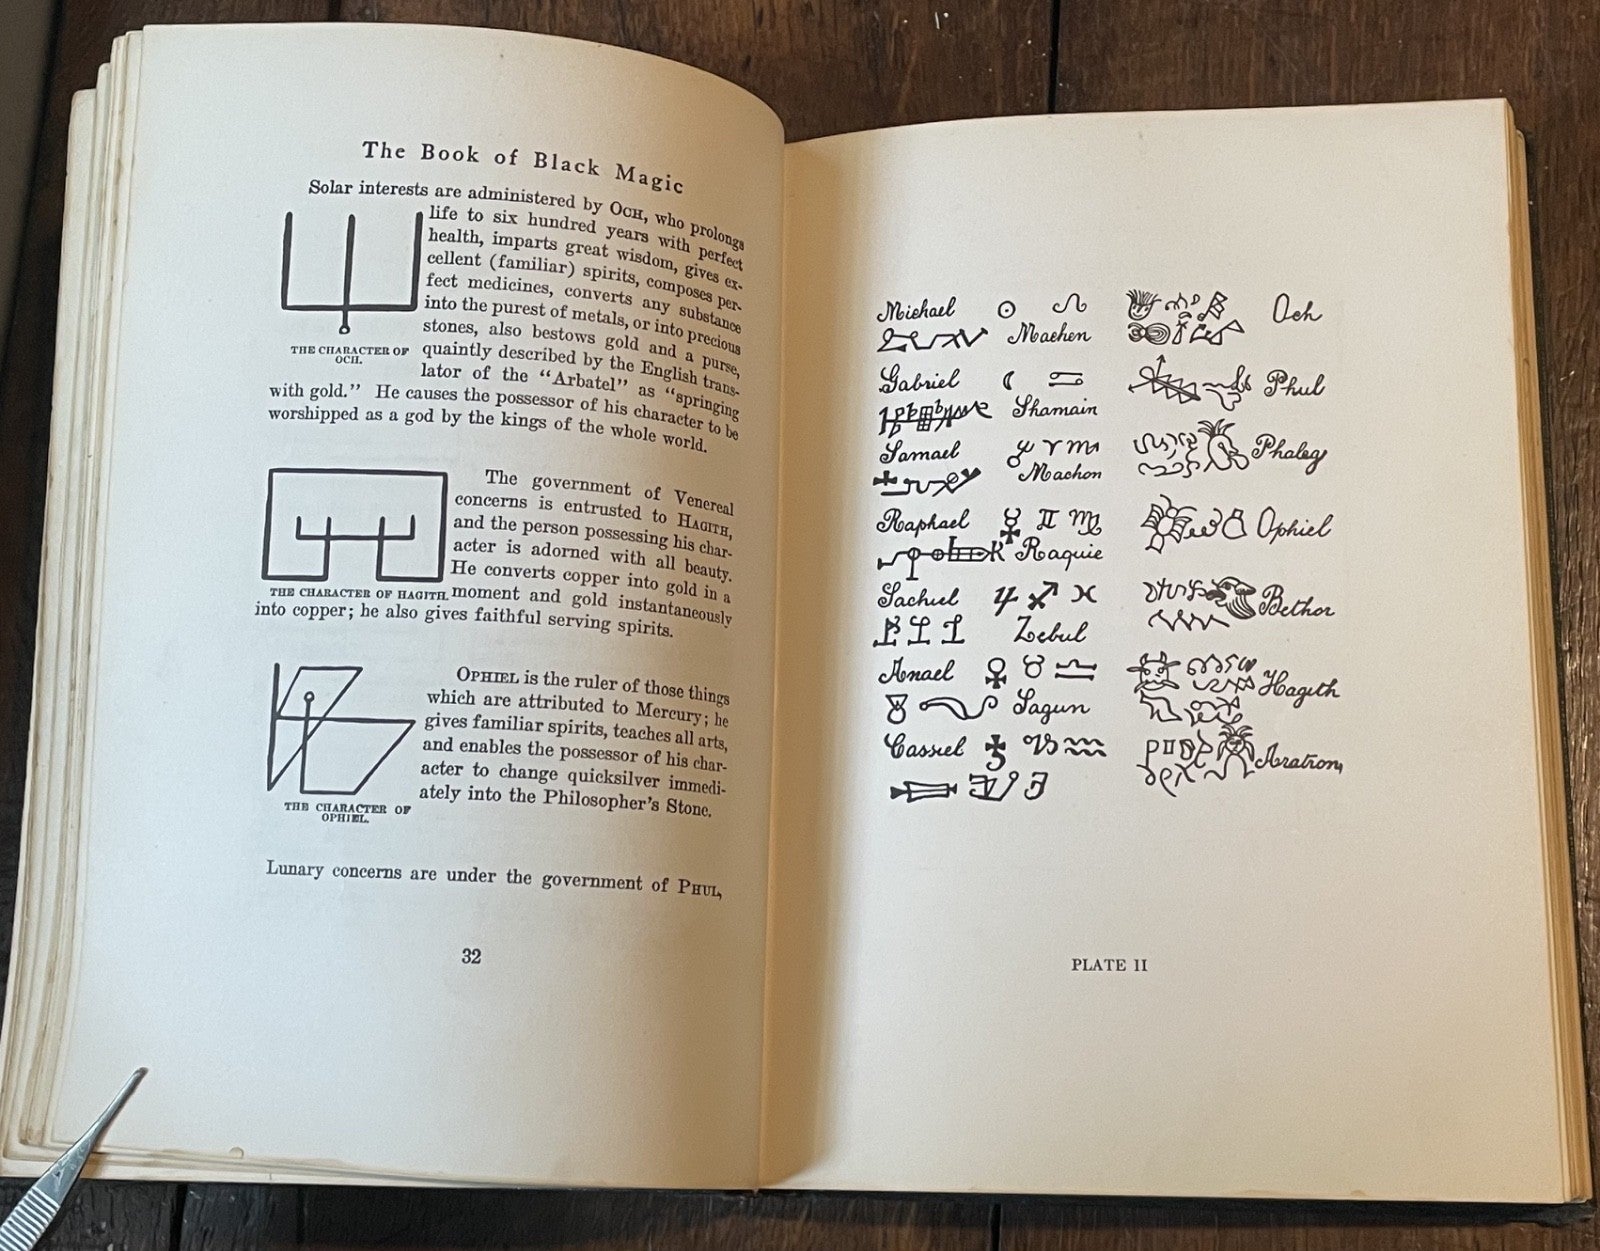 The Book of Black Magic
Solar interests are administered by OCH, who prolongs
life to six hundred years with perfect
health, imparts great wisdom, gives ex-
cellent (familiar) spirits, composes per-
fect medicines, converts any substance
into the purest of metals, or into precious
stones, also bestows gold and a purse,
quaintly described by the English trans-
lator of the “Arbatel” as “springing
with gold.” He causes the possessor of his character to be
worshipped as a god by the kings of the whole world.
THE CHARACTER OF
OCH.
The government of Venereal
concerns is entrusted to HAGITH,
and the person possessing his char-
acter is adorned with all beauty.
He converts copper into gold in a
moment and gold instantaneously
into copper; he also gives faithful serving spirits.
THE CHARACTER OF HAGITH.
OPHIEL is the ruler of those things
which are attributed to Mercury; he
gives familiar spirits, teaches all arts,
and enables the possessor of his char-
acter to change quicksilver immedi-
ately into the Philosopher's Stone.
THE CHARACTER OF
OPHIEL.
Lunary concerns are under the government of PHUL,
32
Michael ☉ ♌ Och
Machen
Gabriel ☾ ♋ Phul
Shamain
Samael ♂ ♈ ♏ Phaleg
Machon
Raphael ☿ ♊ ♍ Ophiel
Raquie
Sachiel ♃ ♐ ♓ Bethor
Zebul
Anael ♀ ♉ ♎ Hagith
Sagun
Cassiel ♄ ♑ ♒ Aratron
PLATE II